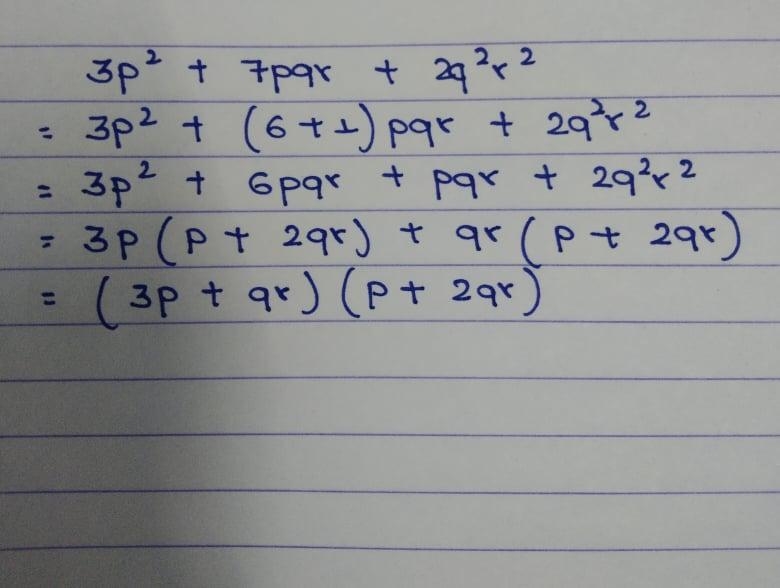 3p² + 7pqr + 2q²r²
= 3p² + (6+1) pqr + 2q²r²
= 3p² + 6pqr + pqr + 2q²r²
= 3p (p + 2qr) + qr (p + 2qr)
= (3p + qr) (p + 2qr)